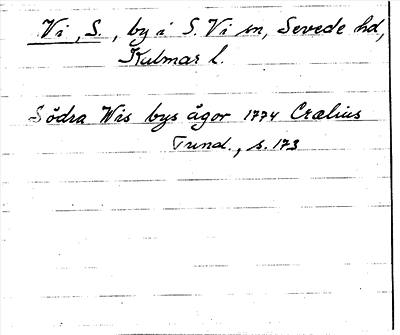 Vi, S., by i S. Vi sn, Sevede hd,
Kalmar l.
Södra Wis bys ägor 1774 Crælius
Tund., s. 173